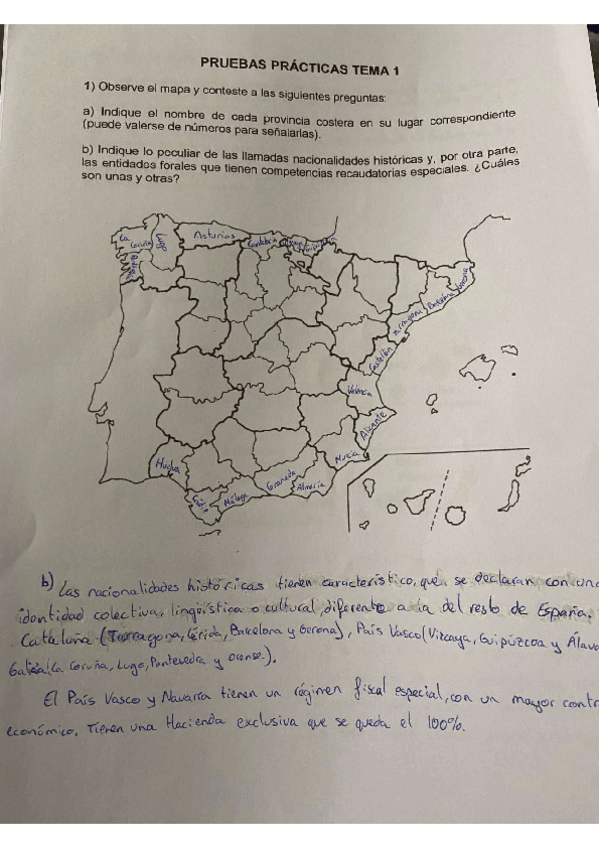 PRUEBAS PRÁCTICAS TEMA 1
1) Observe el mapa y conteste a las siguientes preguntas:
a) Indique el nombre de cada provincia costera en su lugar correspondiente
(puede valerse de números para señalarlas).
b) Indique lo peculiar de las llamadas nacionalidades históricas y, por otra parte,
las entidades forales que tienen competencias recaudatorias especiales. ¿Cuáles
son unas y otras?
La Coruña
Lugo
Asturias
Cantabria
Gerona
Barcelona
Tarragona
Castellón
Valencia
Alicante
Murcia
Huelva
Cádiz
Málaga
Granada
Almería
b) Las nacionalidades históricas tienen característico, que se declaran con una
identidad colectiva, lingüística o cultural diferente a la del resto de España.
Cataluña (Tarragona, Lérida, Barcelona y Gerona), País Vasco (Vizcaya, Guipúzcoa y Álava
Galicia (La Coruña, Lugo, Pontevedra y Orense).
El País Vasco y Navarra tienen un régimen fiscal especial, con un mayor contr
económico. Tienen una Hacienda exclusiva que se queda el 100%.